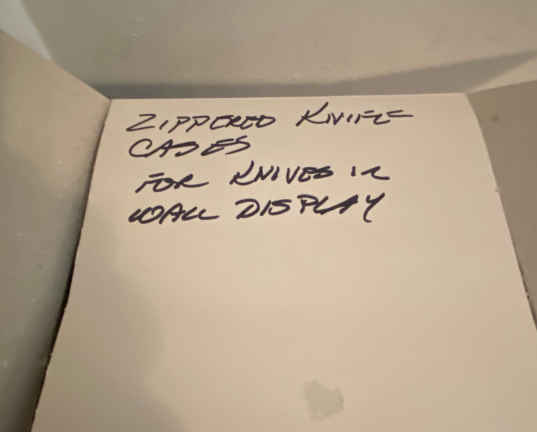 ZIPPERED KNIFE
CASES
FOR KNIVES IN
WALL DISPLAY